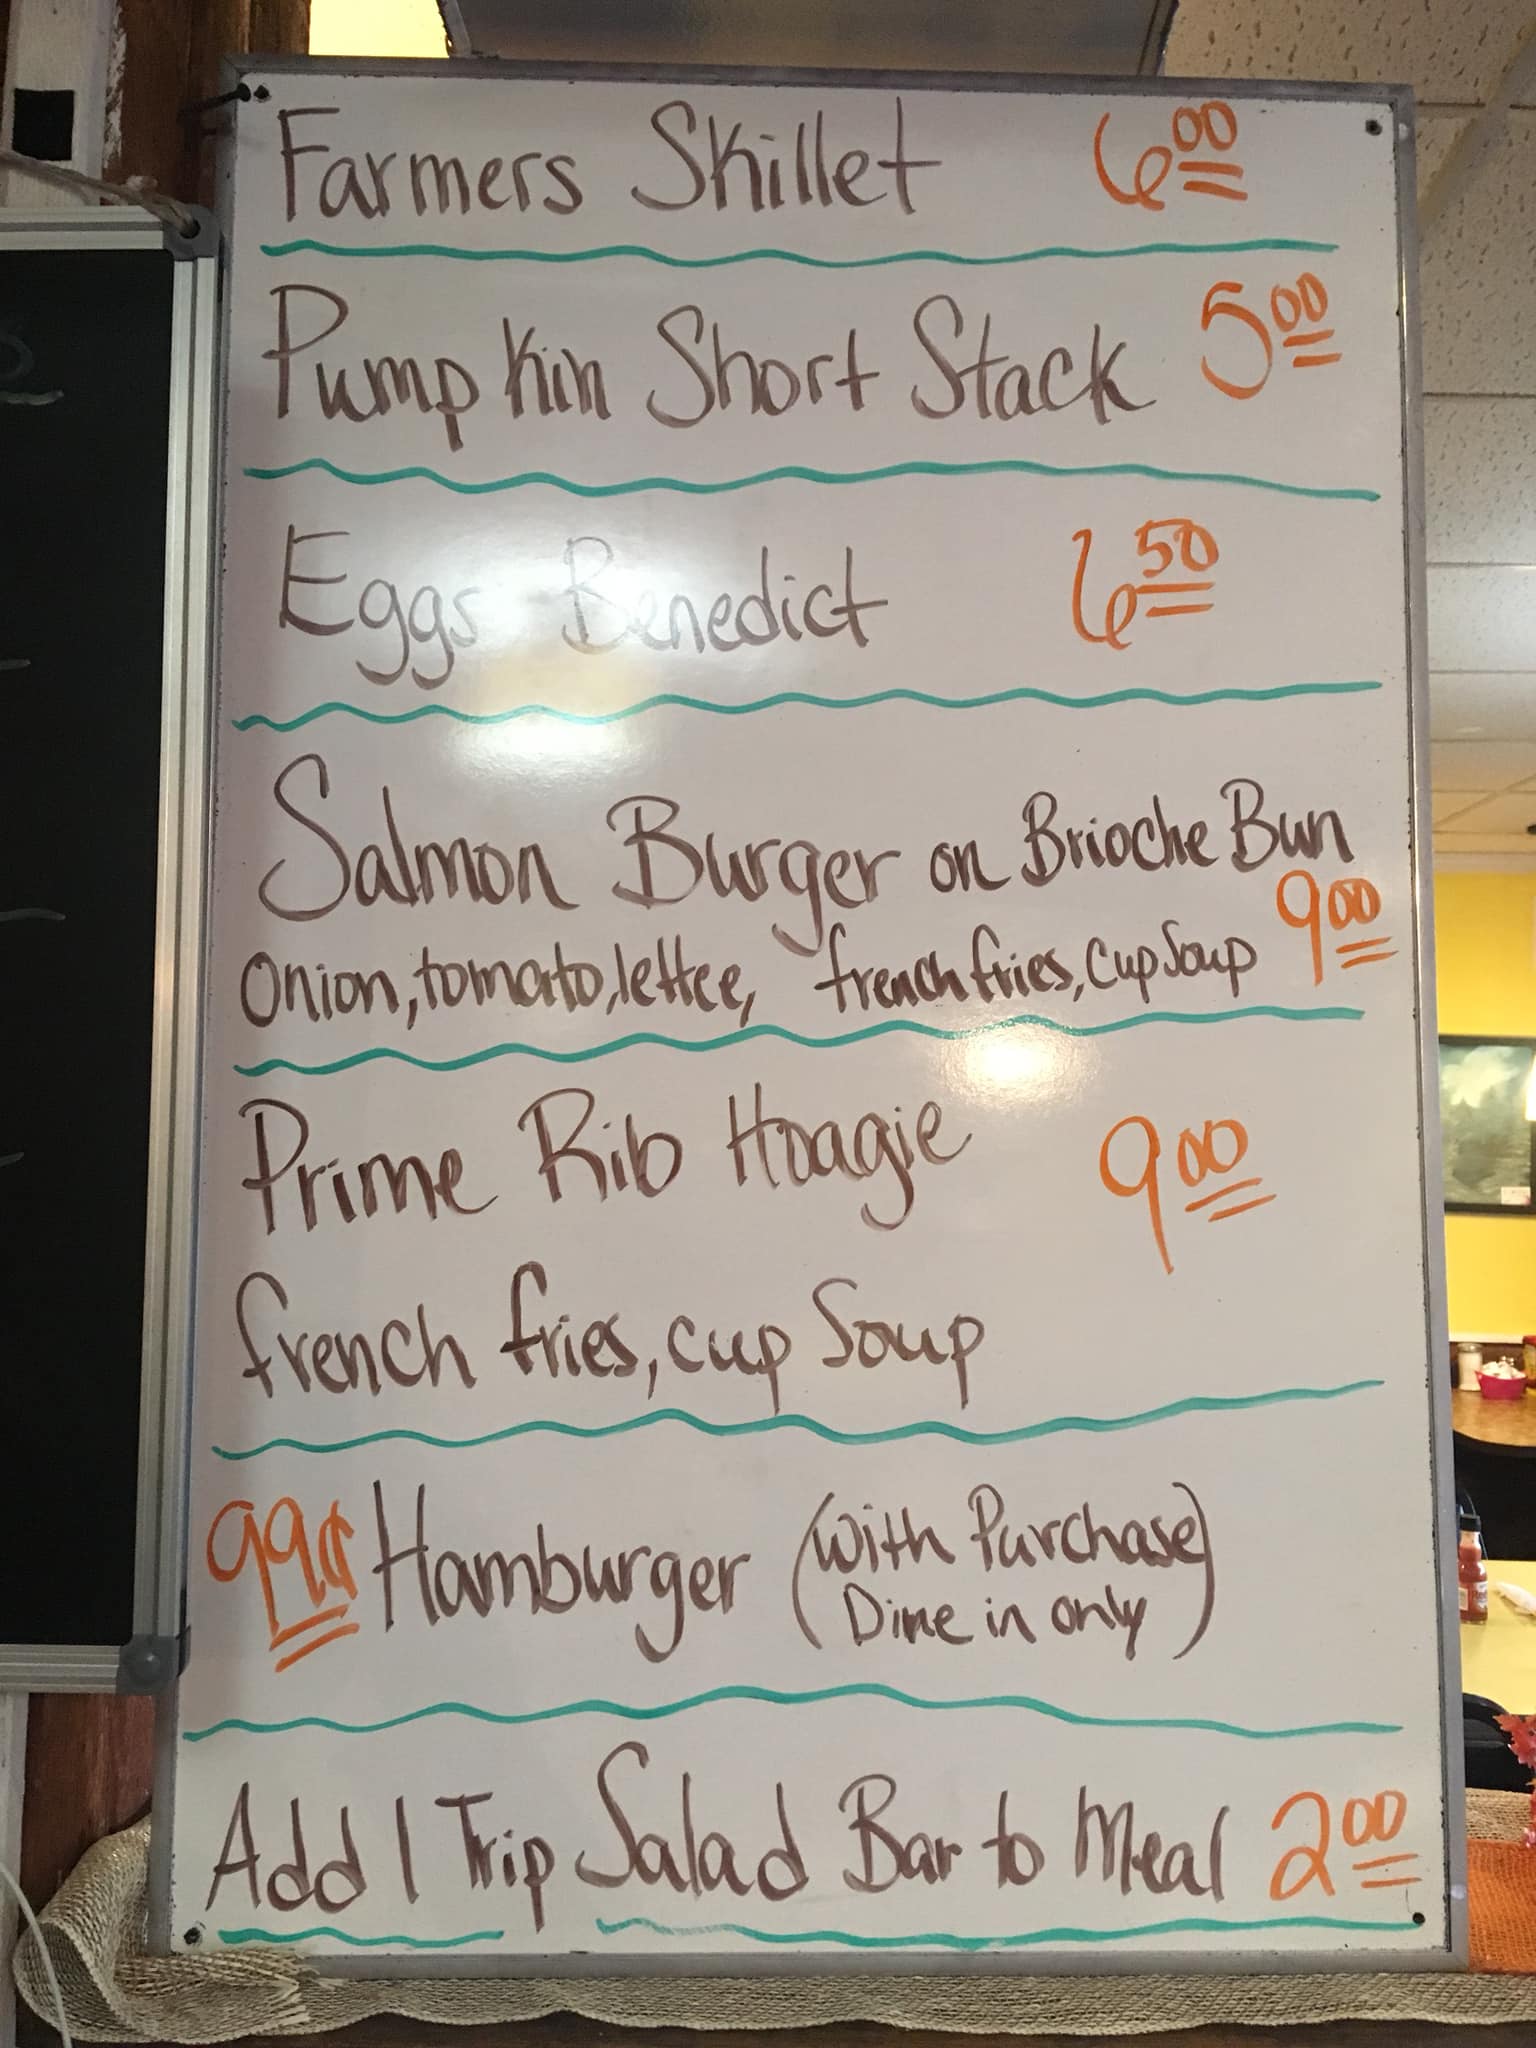 Farmers Skillet 6 00
Pumpkin Short Stack 5 00
Eggs Benedict 6 50
Salmon Burger on Brioche Bun
Onion, tomato, lettce, french fries, Cup Soup 9 00
Prime Rib Hoagie 9 00
french fries, cup Soup
99¢ Hamburger (With Purchase
Dine in only)
Add 1 Trip Salad Bar to Meal 2 00